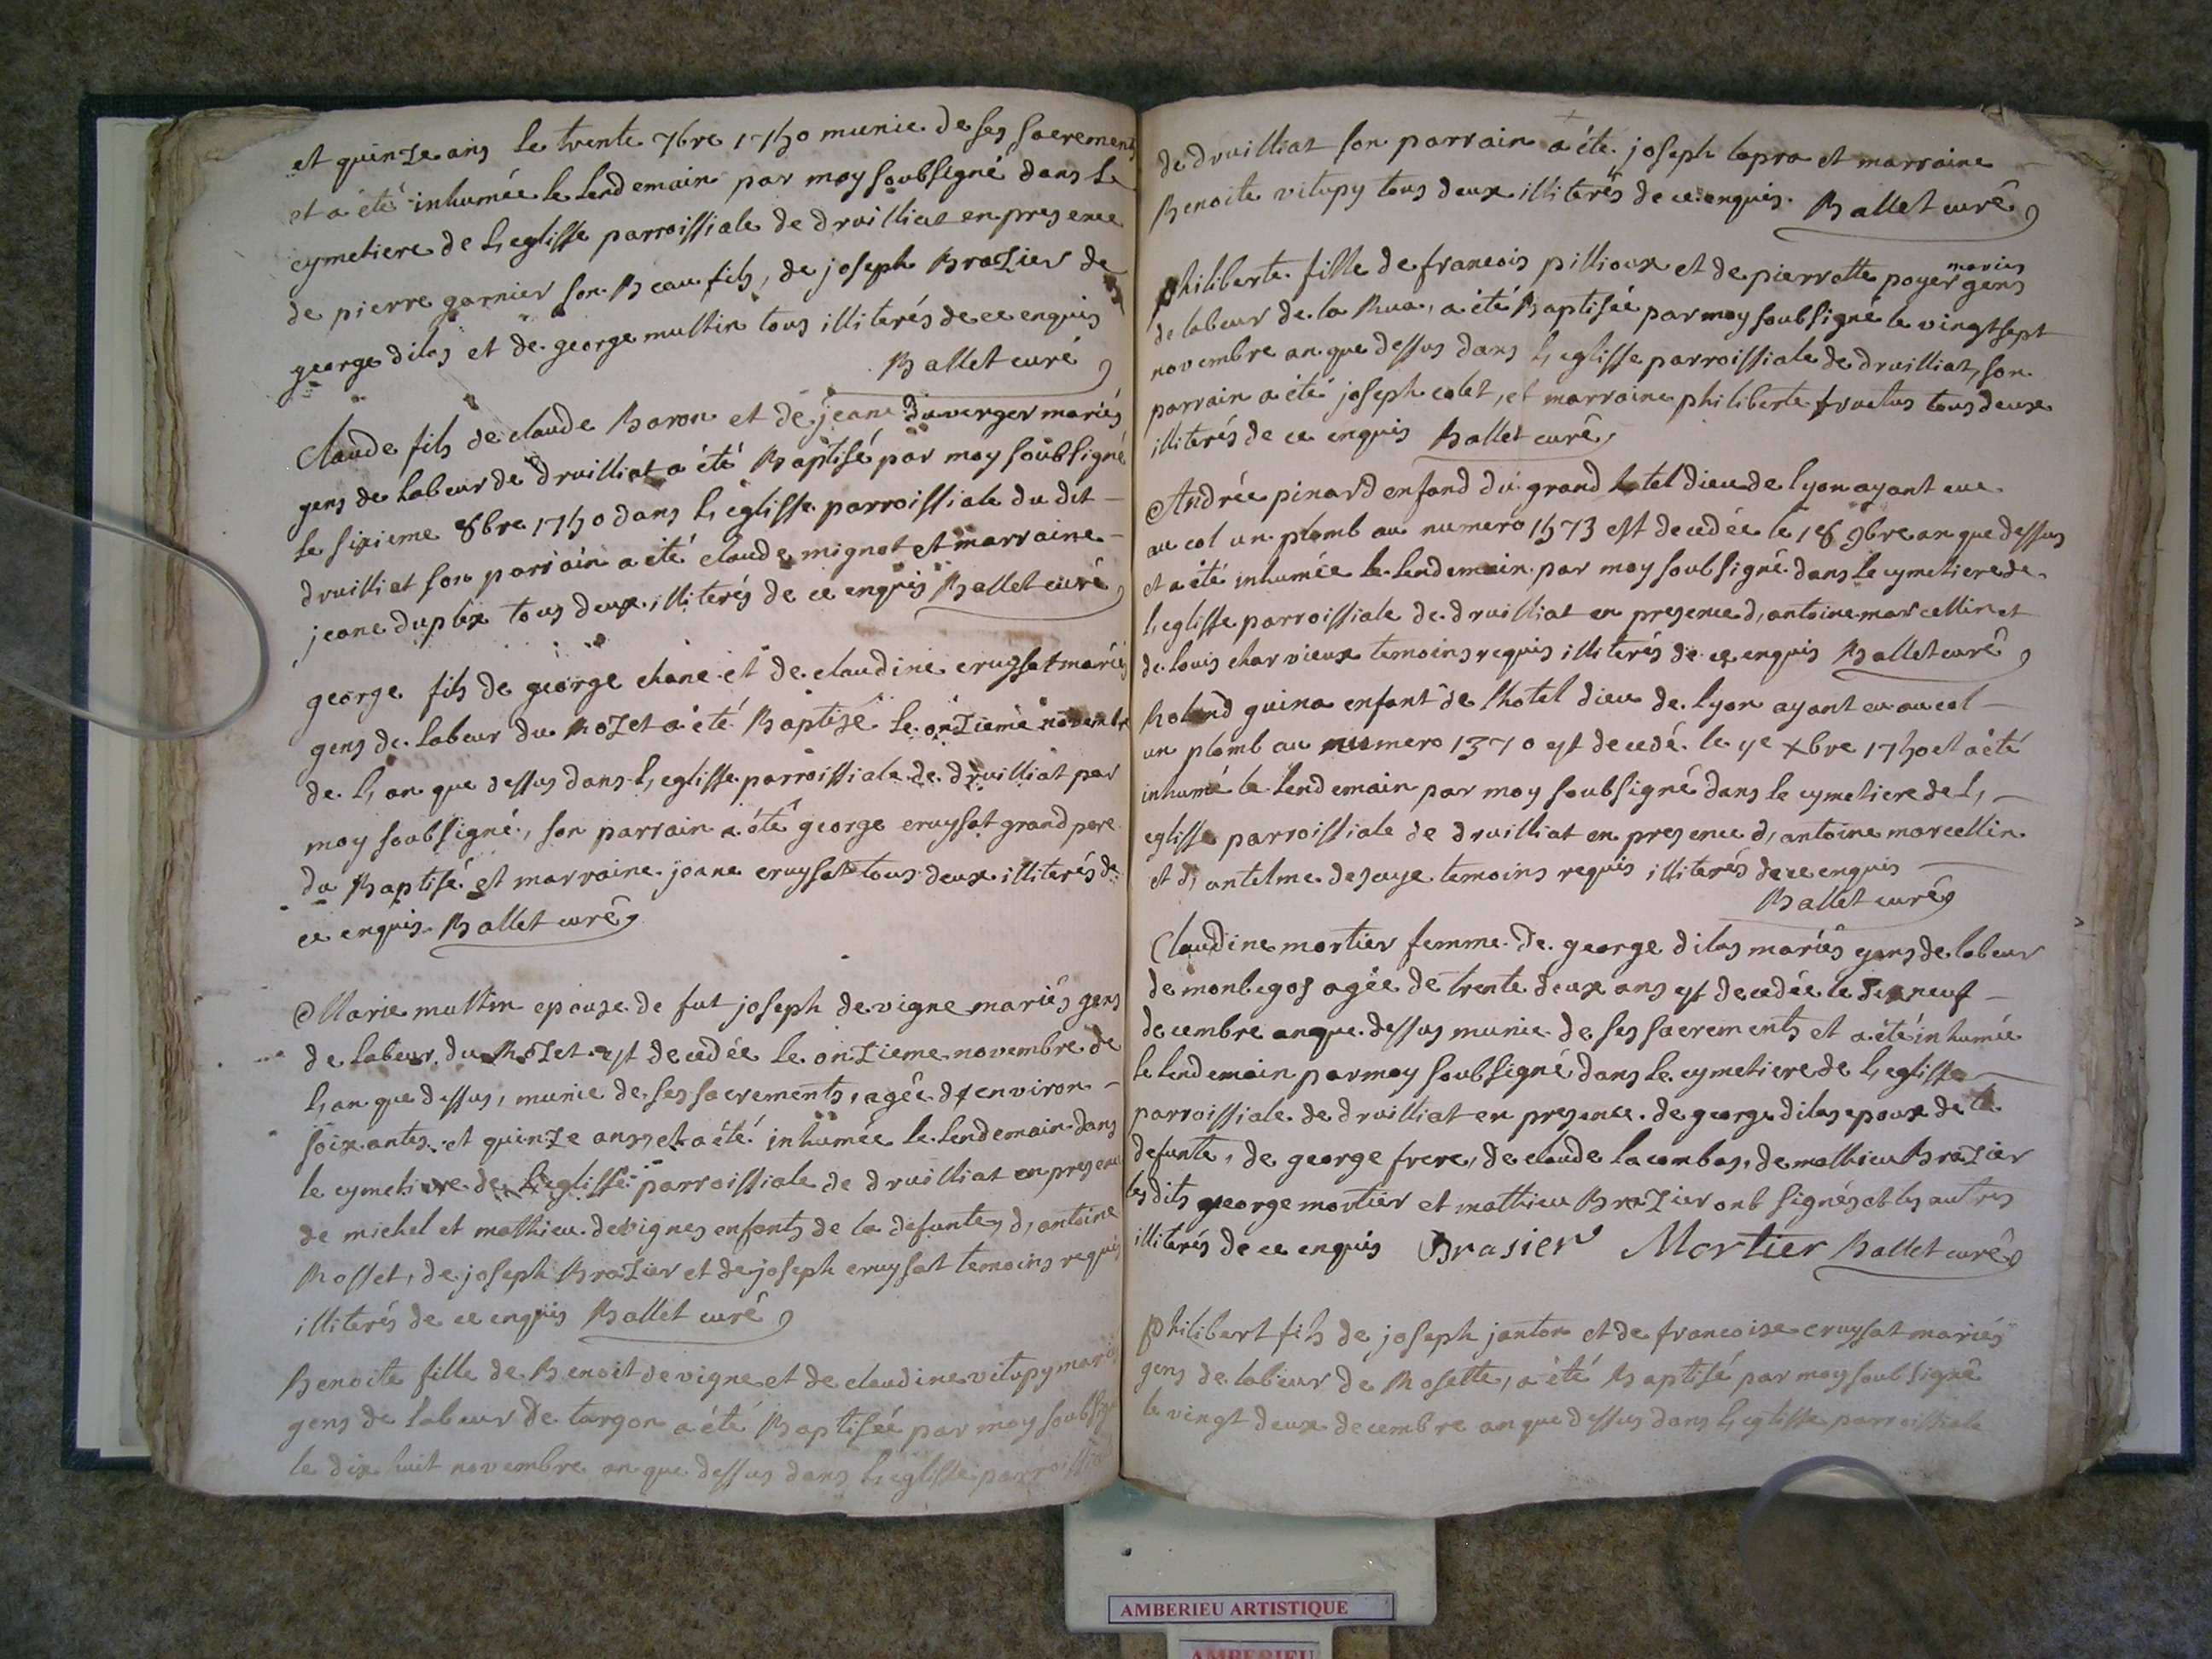 et quinze ans le trente 7bre 1750 munie de ses sacrements
et a été inhumée le lendemain par moy soubsigné dans le
cymetiere de l, eglisse parroissiale de druilliat en presence
de pierre garnier son Beau fils, de joseph Brazier de
george dilas et de george multin tous illiterés de ce enquis
Ballet curé
Claude fils de claude Baron et de jeane duverger mariés
gens de labeur de druilliat a été Baptisé par moy soubsigné
le sixieme 8bre 1750 dans l, eglisse parroissiale du dit
druilliat son parrain a été claude mignot et marraine
jeane duplex tous deux illiterés de ce enquis Ballet curé
george fils de george chane et de claudine cruysat mariés
gens de labeur du Rozet a été Baptisé le onzieme novembre
de l, an que dessus dans l, eglisse parroissiale de druilliat par
moy soubsigné, son parrain a été george cruysat grand pere
du Baptisé et marraine jeane cruysat tous deux illiterés de
ce enquis Ballet curé
Marie multin epouse de fut joseph devigne mariés gens
de labeur du Rozet est decedée le onzieme novembre de
l, an que dessus, munie de ses sacrements, agée d, environ
soixantes et quinze ans, et a été inhumée le lendemain dans
le cymetiere de l'eglisse parroissiale de druilliat en presence
de michel et mathieu devignes enfants de la defunte, d, antoine
Rosset, de joseph Brazier et de joseph cruysat temoins requis
illiterés de ce enquis Ballet curé
Benoite fille de Benoit devigne et de claudine vitupy mariés
gens de labeur de turgon a été Baptisée par moy soubsigné
le dix huit novembre an que dessus dans l, eglisse parroissiale
de druilliat son parrain a été joseph lapra et marraine
Benoite vitupy tous deux illiterés de ce enquis. Ballet curé
philiberte fille de francois pillioux et de pierrette poyer mariés gens
de labeur de la Rua, a été Baptisée par moy soubsigné le vingt sept
novembre an que dessus dans l, eglisse parroissiale de druilliat, son
parrain a été joseph colet, et marraine philiberte fructus tous deux
illiterés de ce enquis Ballet curé
Andrée pinard enfand du grand hotel dieu de lyon ayant eue
au col un plomb au numero 1573 est decedée le 18 9bre an que dessus
et a été inhumée le lendemain par moy soubsigné dans le cymetiere de
l, eglisse parroissiale de druilliat en presence d, antoine marcellin et
de louis charvieux temoins requis illiterés de ce enquis Ballet curé
Roland guina enfant de l'hotel dieu de lyon ayant eu au col
un plomb au numero 1370 est decedé le ye xbre 1750 et a été
inhumé le lendemain par moy soubsigné dans le cymetiere de l,
eglisse parroissiale de druilliat en presence d, antoine marcellin
et d, antelme desaye temoins requis illiterés de ce enquis
Ballet curé
Claudine mortier femme de george dilas mariés gens de labeur
de monbegos agée de trente deux ans est decedée le dix neuf
decembre an que dessus munie de ses sacrements et a été inhumée
le lendemain par moy soubsigné dans le cymetiere de l, eglisse
parroissiale de druilliat en presence de george dilas epoux de la
defunte, de george frere, de claude lacombas, de mathieu Brazier
les dits george mortier et mathieu Brazier ont signés et les autres
illiterés de ce enquis Brasier Mortier Ballet curé
philibert fils de joseph janton et de francoise cruysat mariés
gens de labeur de Rosette, a été Baptisé par moy soubsigné
le vingt deux decembre an que dessus dans l, eglisse parroissiale
AMBERIEU ARTISTIQUE
AMBERIEU